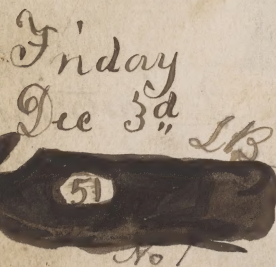 Friday
Dec 3d
LB
51
No 1